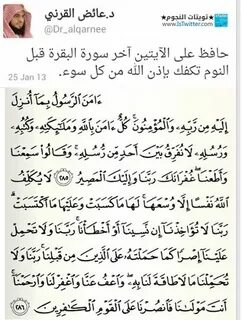 د.عائض القرني
@Dr_alqarnee
★تويتات النجوم★
TwitStars.Info
حافظ على الآيتين آخر سورة البقرة قبل
النوم تكفك بإذن الله من كل سوء.
25 Jan 13
ءَامَنَ ٱلرَّسُولُ بِمَآ أُنزِلَ
إِلَيْهِ مِن رَّبِّهِۦ وَٱلْمُؤْمِنُونَ ۚ كُلٌّ ءَامَنَ بِٱللَّهِ وَمَلَٰٓئِكَتِهِۦ وَكُتُبِهِۦ
وَرُسُلِهِۦ لَا نُفَرِّقُ بَيْنَ أَحَدٍ مِّن رُّسُلِهِۦ ۚ وَقَالُوا۟ سَمِعْنَا
وَأَطَعْنَا ۖ غُفْرَانَكَ رَبَّنَا وَإِلَيْكَ ٱلْمَصِيرُ ٢٨٥ لَا يُكَلِّفُ
ٱللَّهُ نَفْسًا إِلَّا وُسْعَهَا ۚ لَهَا مَا كَسَبَتْ وَعَلَيْهَا مَا ٱكْتَسَبَتْ ۗ
رَبَّنَا لَا تُؤَاخِذْنَآ إِن نَّسِينَآ أَوْ أَخْطَأْنَا ۚ رَبَّنَا وَلَا تَحْمِلْ
عَلَيْنَآ إِصْرًا كَمَا حَمَلْتَهُۥ عَلَى ٱلَّذِينَ مِن قَبْلِنَا ۚ رَبَّنَا وَلَا
تُحَمِّلْنَا مَا لَا طَاقَةَ لَنَا بِهِۦ ۖ وَٱعْفُ عَنَّا وَٱغْفِرْ لَنَا وَٱرْحَمْنَآ ۚ
أَنتَ مَوْلَىٰنَا فَٱنصُرْنَا عَلَى ٱلْقَوْمِ ٱلْكَٰفِرِينَ ٢٨٦